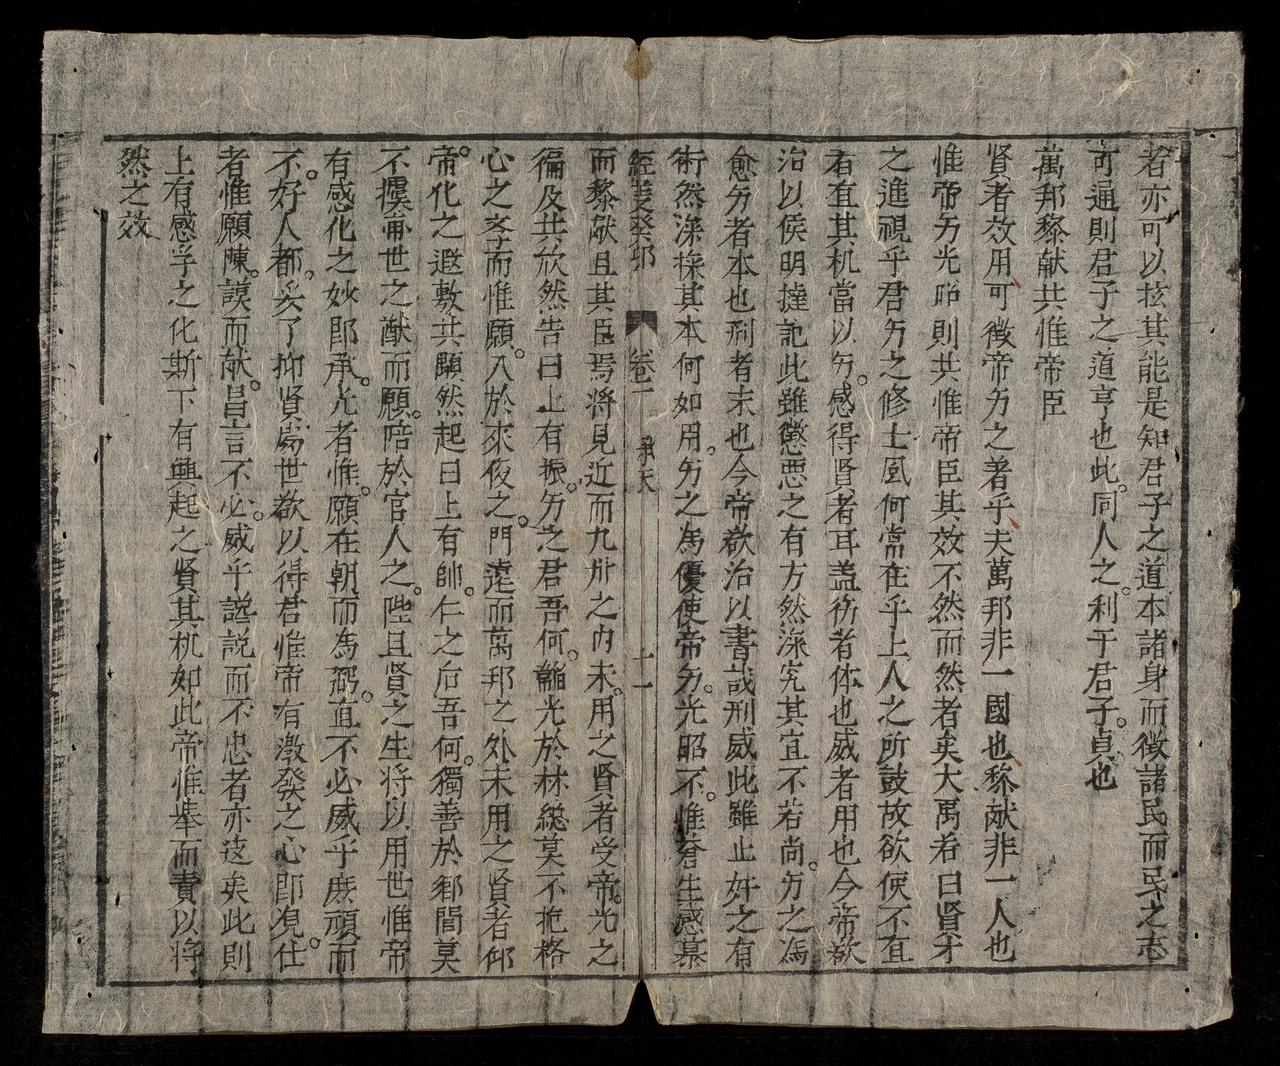 者亦可以扲其能是知君子之道本諸身而徴諸民而民之志
可通則君子之道亨也此同人之利于君子貞也
萬邦黎献共惟帝臣
賢者效用可徴帝力之著乎夫萬邦非一國也黎献非一人也
惟帝㐆光昭則共惟帝臣其效不然而然者矣大禹若曰賢才
之進視乎君㐆之修士風何嘗在乎上人之所鼓故欲使不直
者直其机當以㐆感得賢者耳盖㐆者体也威者用也今帝欲
治以侯明撻記此雖懲悪之有方然深究其宜不若尚㐆之為
愈㐆者本也刑者末也今帝欲治以書哉刑威此雖止奸之有
術然深探其本何如用㐆之為優使帝㐆光昭不惟蒼生感慕
經義癸卯 卷一 十一
而黎献且其臣焉將見近而九州之内未用之賢者受帝光之
徧及共欣然告曰上有振㐆之君吾何韜光於林総莫不抱格
心之孝而惟願入於來夜之門遠而萬邦之外未用之賢者仰
帝化之遐敷共願然起曰上有帥仁之后吾何獨善於鄉閭莫
不攄帝世之猷而願陪於官人之陛且賢之生將以用世惟帝
有感化之妙即承允者惟願在朝而為弼直不必威乎庶頑而
不好人都矣了抑賢為世欲以得君惟帝有激發之心即見仕
者惟願陳謨而献昌言不必威乎讒説而不忠者亦逺矣此則
上有感孚之化斯下有興起之賢其机如此帝惟舉而責以將
然之效